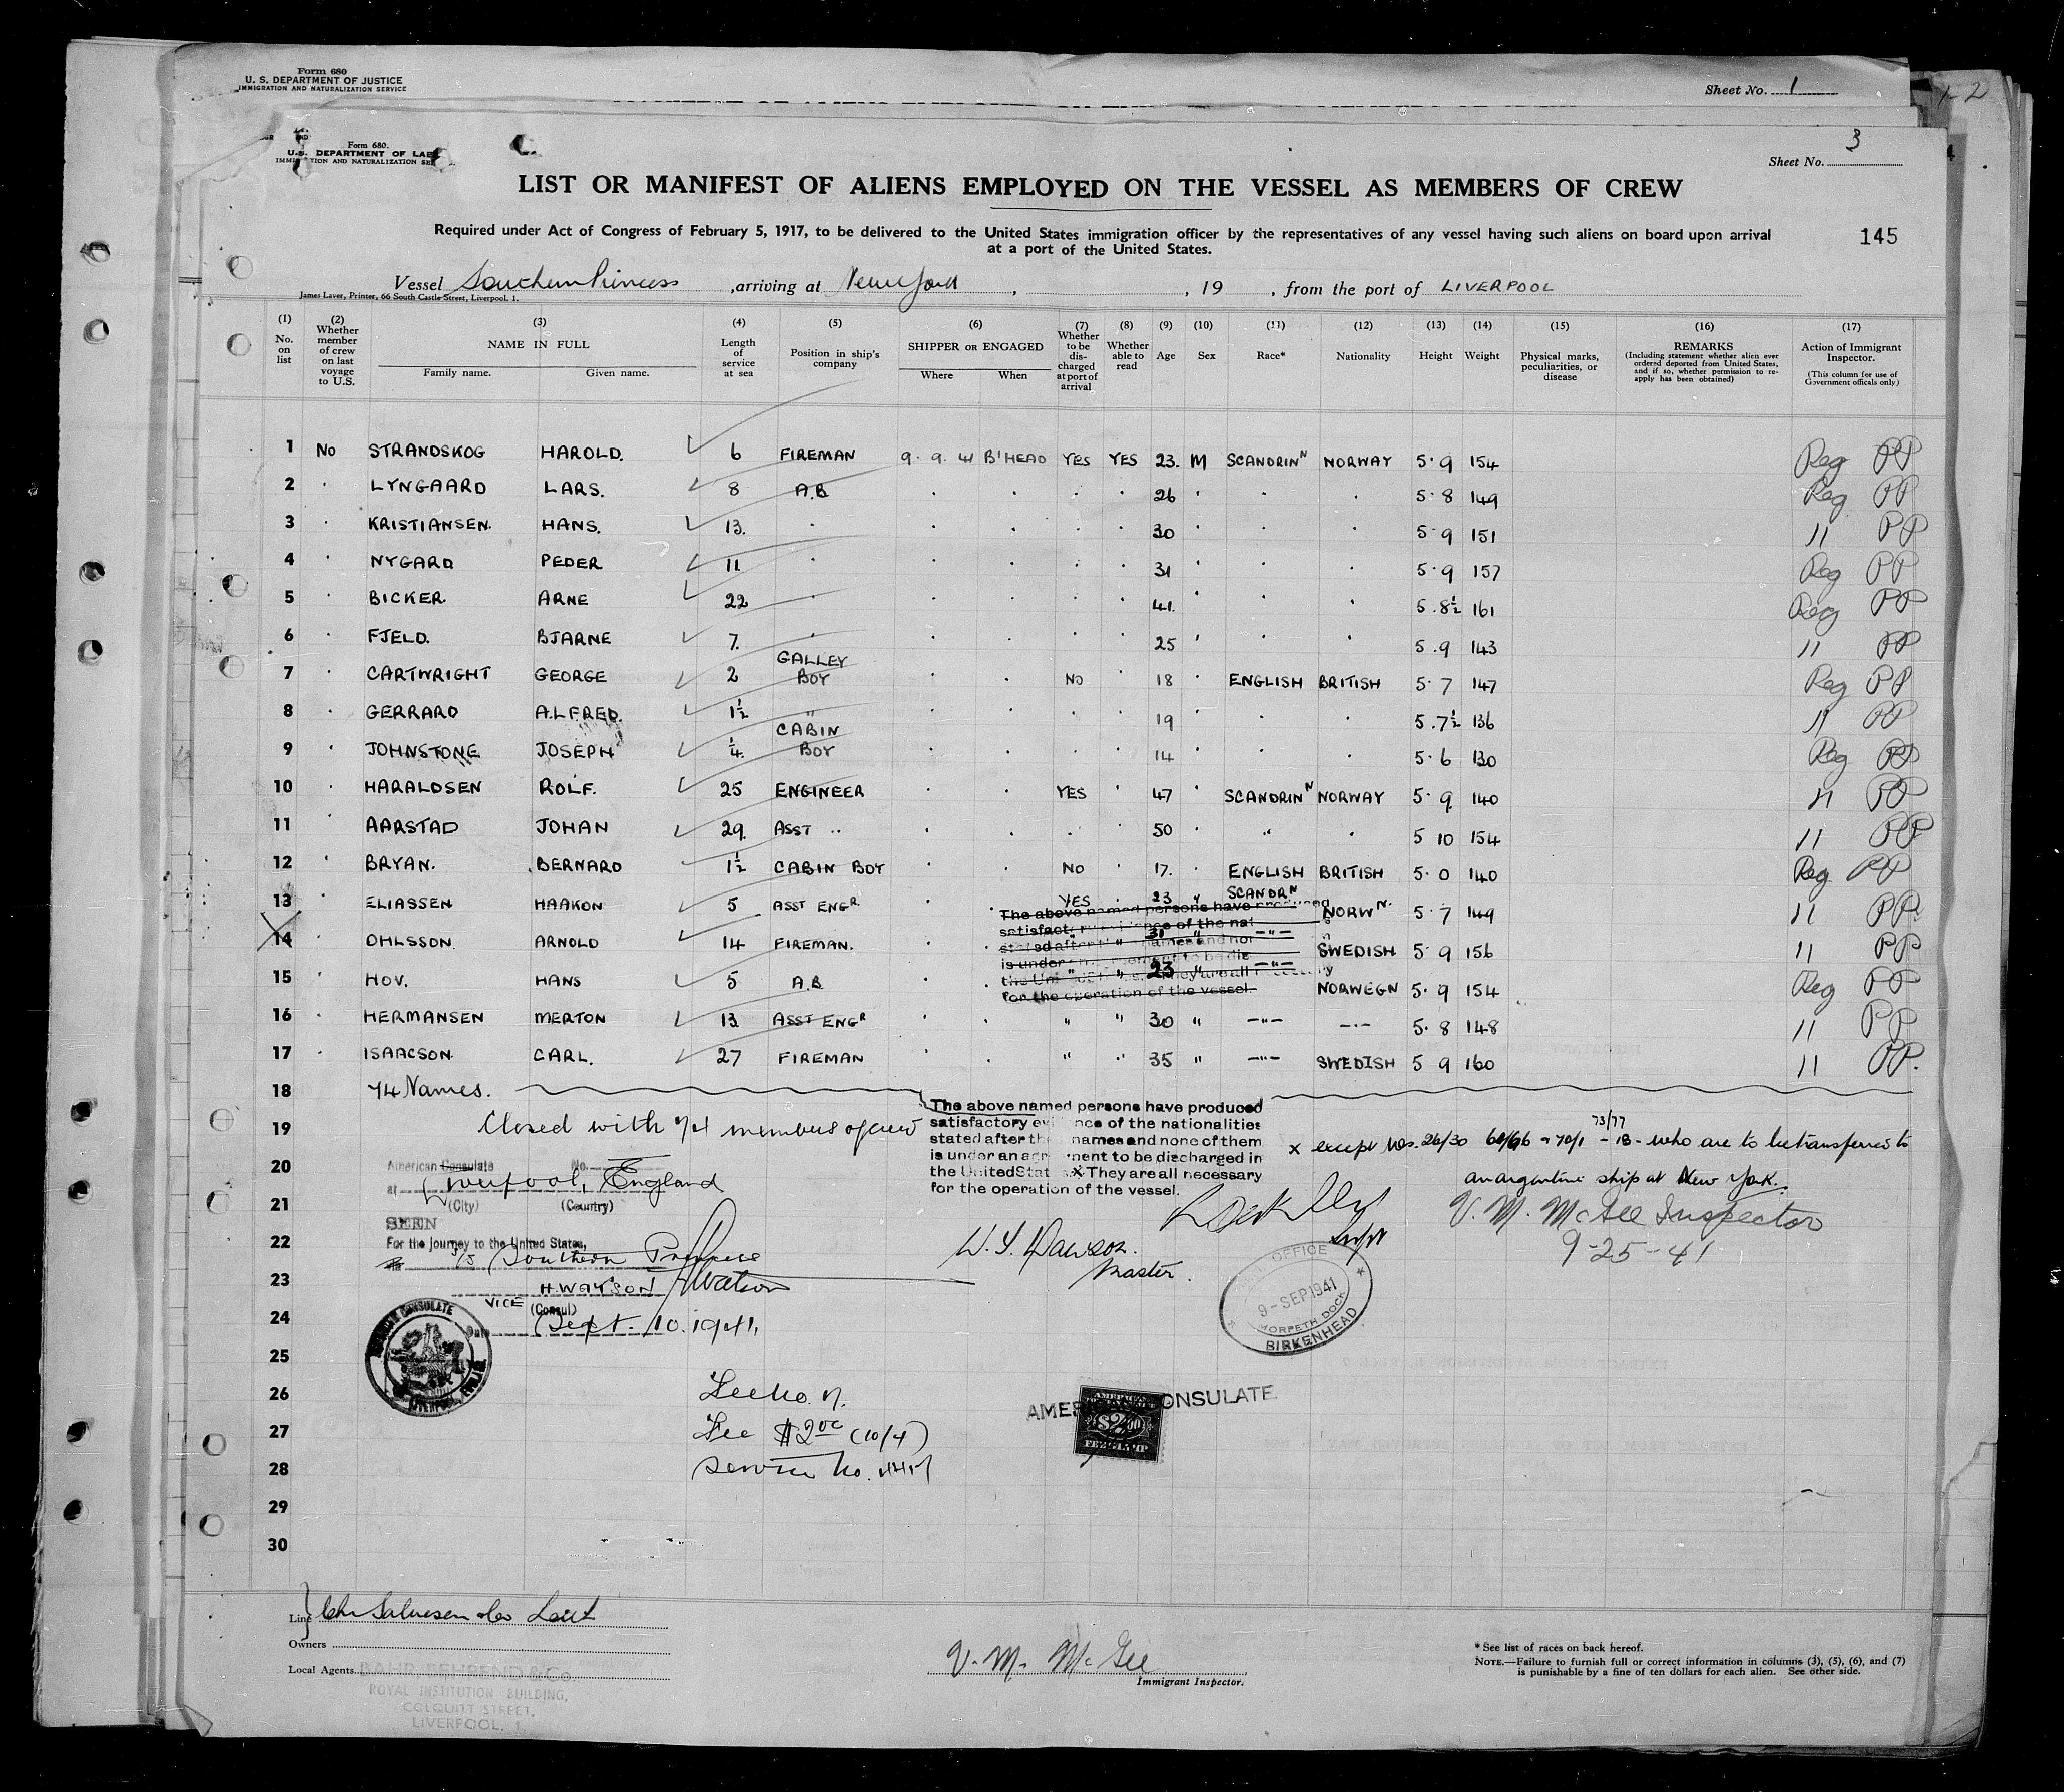 Form 680
U. S. DEPARTMENT OF JUSTICE
IMMIGRATION AND NATURALIZATION SERVICE
Sheet No. 1
2
Form 680.
U.S. DEPARTMENT OF LAB
IMMI TION AND NATURALIZATION SE
3
Sheet No.
LIST OR MANIFEST OF ALIENS EMPLOYED ON THE VESSEL AS MEMBERS OF CREW
Required under Act of Congress of February 5, 1917, to be delivered to the United States immigration officer by the representatives of any vessel having such aliens on board upon arrival
at a port of the United States.
145
Vessel Southern Princess , arriving at New York , , 19 , from the port of LIVERPOOL
James Laver, Printer, 66 South Castle Street, Liverpool. 1.
(1) No. on list
(2) Whether member of crew on last voyage to U.S.
(3) NAME IN FULL Family name. Given name.
(4) Length of service at sea
(5) Position in ship's company
(6) SHIPPER OR ENGAGED Where When
(7) Whether to be discharged at port of arrival
(8) Whether able to read
(9) Age
(10) Sex
(11) Race*
(12) Nationality
(13) Height
(14) Weight
(15) Physical marks, peculiarities, or disease
(16) REMARKS (Including statement whether alien ever ordered deported from United States, and if so, whether permission to re-apply has been obtained)
(17) Action of Immigrant Inspector. (This column for use of Government officals only)
1 No STRANDSKOG HAROLD. 6 FIREMAN 9. 9. 41 B'HEAD YES YES 23. M SCANDRIN N NORWAY 5·9 154 Reg PP
2 LYNGAARD LARS. 8 A.B 26 5·8 149 Reg PP
3 KRISTIANSEN. HANS. 13. 30 5·9 151 11 PP
4 NYGARD PEDER 11 31 5·9 157 Reg PP
5 BICKER. ARNE 22 41. 5.8½ 161 Reg PP
6 FJELD. BJARNE 7. 25 5.9 143 11 PP
7 CARTWRIGHT GEORGE 2 GALLEY BOY NO 18 ENGLISH BRITISH 5·7 147 Reg PP
8 GERRARD ALFRED. 1½ " 19 5.7½ 136 11 PP
9 JOHNSTONE JOSEPH ¼ CABIN BOY 14 5·6 130 Reg PP
10 HARALDSEN ROLF. 25 ENGINEER YES 47 SCANDRIN N NORWAY 5·9 140 11 PP
11 AARSTAD JOHAN 29. ASST " 50 " 5 10 154 11 PP
12 BRYAN. BERNARD 1½ CABIN BOY NO 17. ENGLISH BRITISH 5·0 140 Reg PP
13 ELIASSEN HAAKON 5 ASST ENGR YES 23 " SCANDR N NORW N. 5·7 149 11 PP.
14 OHLSSON. ARNOLD 14 FIREMAN. " " 31 " -"- SWEDISH 5 9 156 11 PP
15 HOV. HANS 5 A.B. " " 23 " -"- NORWEGN 5·9 154 Reg PP
The above named persons have produced
satisfact nce of the nat
stated after names and no
is under ment to be dis
the Uni They are all
for the operation of the vessel.
16 HERMANSEN MERTON 13 ASST ENGR " " 30 " -"- -"- 5·8 148 11 PP
17 ISAACSON CARL. 27 FIREMAN " " 35 " -"- SWEDISH 5 9 160 11 PP.
18 74 Names.
19 Closed with 74 members of crew
The above named persons have produced
satisfactory ev nce of the nationalities
stated after th names and none of them
is under an agr ment to be discharged in
the United Stat s. X They are all necessary
for the operation of the vessel.
73/77
x except Nos. 26/30 - 70/1 - 18 - who are to be transferred to
an argentine ship at New York.
20 American Consulate No.
at Liverpool, England
21 (City) (Country)
SEEN
22 For the journey to the United States,
S/S Southern Princess
23 H. WATSON HWatson
VICE (Consul)
24 Date Sept. 10. 1941.
25
AMERICAN CONSULATE
LIVERPOOL
W. Y. Dawson.
Master.
Supt
V. M. McGee Inspector
9-25-41
OFFICE
9-SEP 1941
MORPETH DOCK
BIRKENHEAD
26
27 Fee $2.00 (10/4)
28 Service No.
29
30
AMERICAN CONSULATE.
AMERICAN
$2.00
FEE STAMP
Line Chr Salvesen & Co Leith
Owners
Local Agents BAHR BEHREND & Co.
ROYAL INSTITUTION BUILDING,
COLQUITT STREET,
LIVERPOOL, 1.
V. M. McGee
Immigrant Inspector.
* See list of races on back hereof.
NOTE.—Failure to furnish full or correct information in columns (3), (5), (6), and (7)
is punishable by a fine of ten dollars for each alien. See other side.